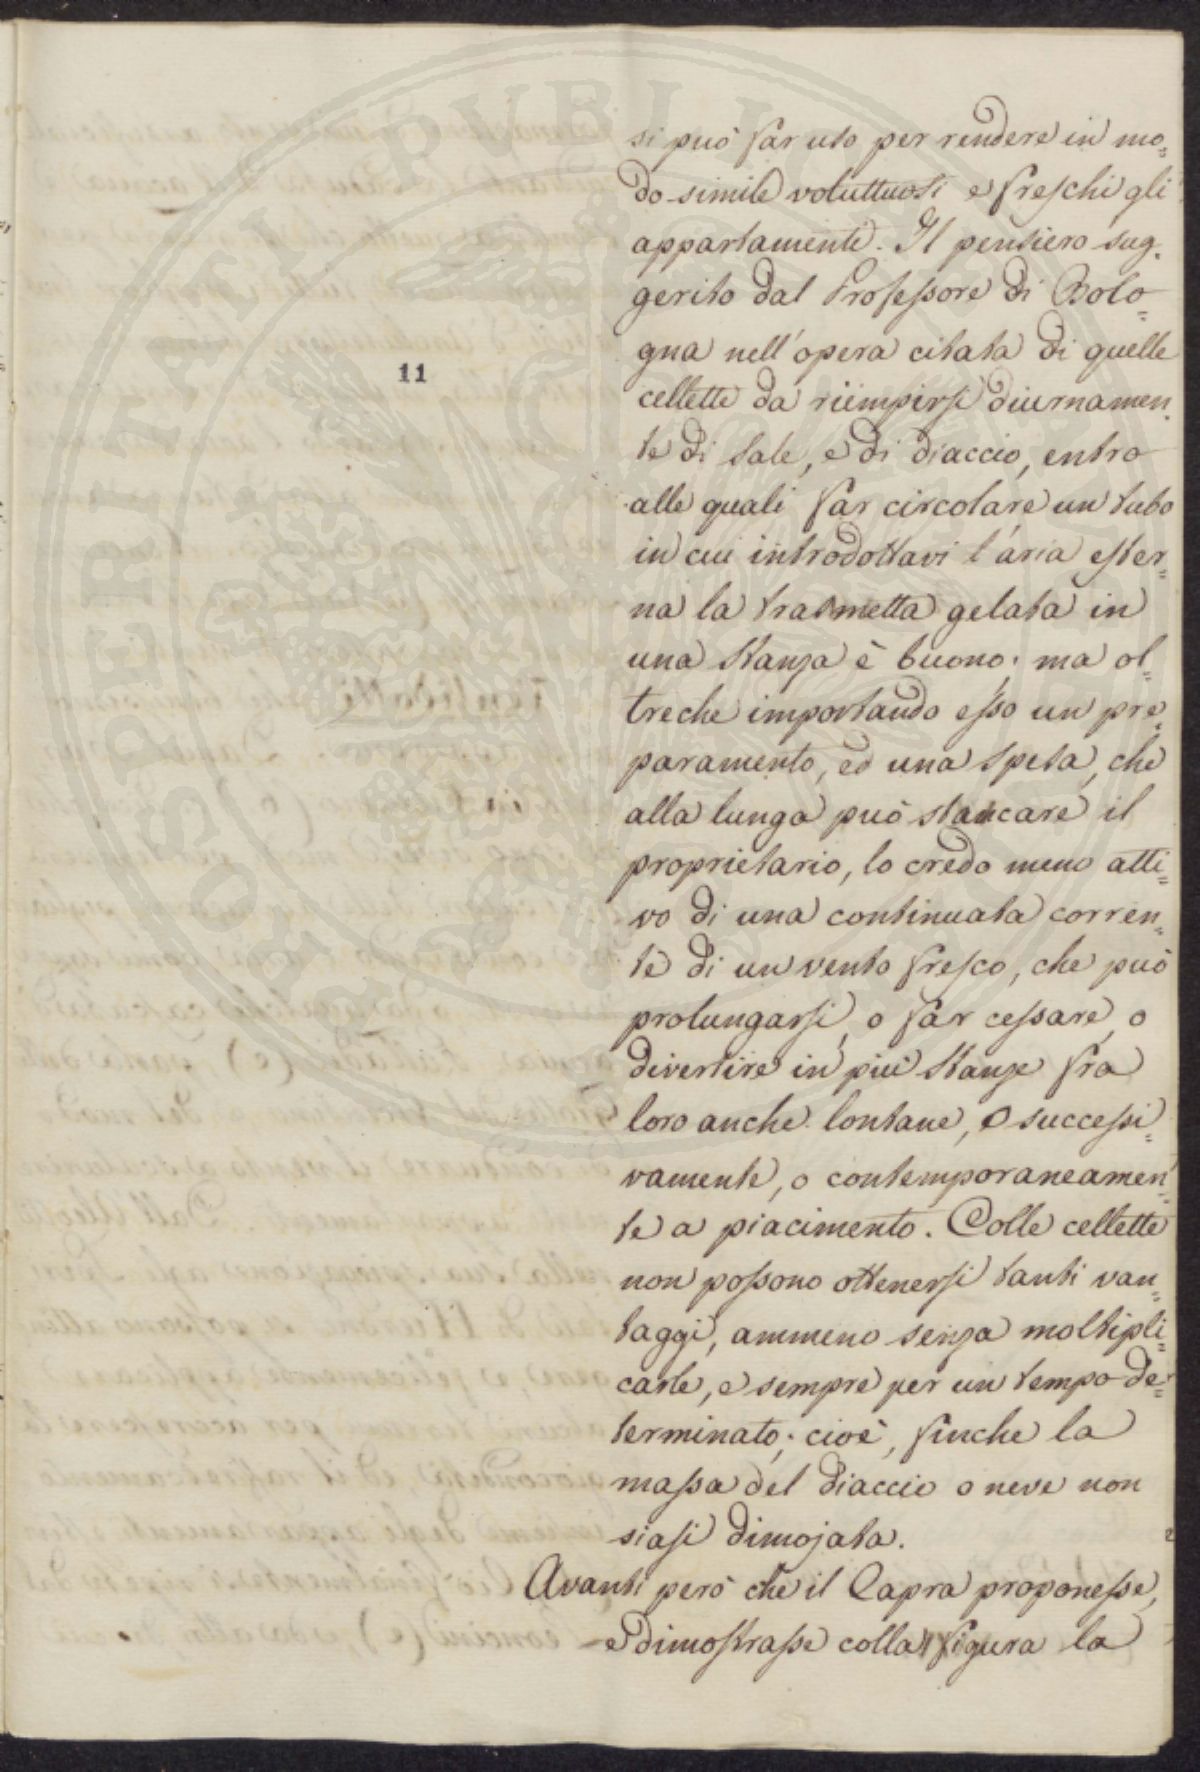 11
si può far uso per rendere in mo=
do simile voluttuosi e freschi gli
appartamenti. Il pensiero sug=
gerito dal Professore di Bolo=
gna nell'opera citata di quelle
cellette da riempirsi diurnamen=
te di sale, e di diaccio, entro
alle quali far circolare un tubo
in cui introdottavi l'aria ester=
na la trasmetta gelata in
una stanza è buono; ma ol=
treche importando esso un pre=
paramento, ed una spesa, che
alla lunga può stancare il
proprietario, lo credo meno atti=
vo di una continuata corren=
te di un vento fresco, che può
prolungarsi, o far cessare, o
divertire in più stanze fra
loro anche lontane, o successi=
vamente, o contemporaneamen=
te a piacimento. Colle cellette
non possono ottenersi tanti van=
taggi, ammeno senza moltipli=
carle, e sempre per un tempo de=
terminato; cioè, finche la
massa del diaccio o neve non
siasi dimojata.
Avanti però che il Capra proponesse,
e dimostrasse colla figura la